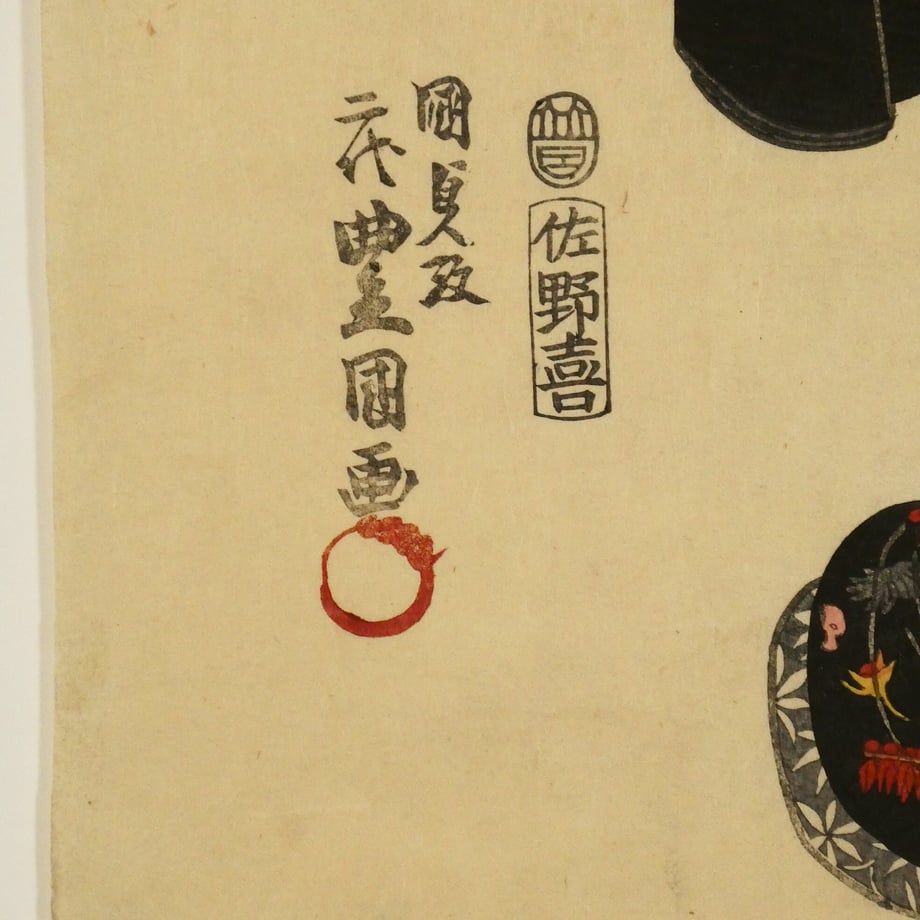 佐野喜
國貞改
二代豊國画